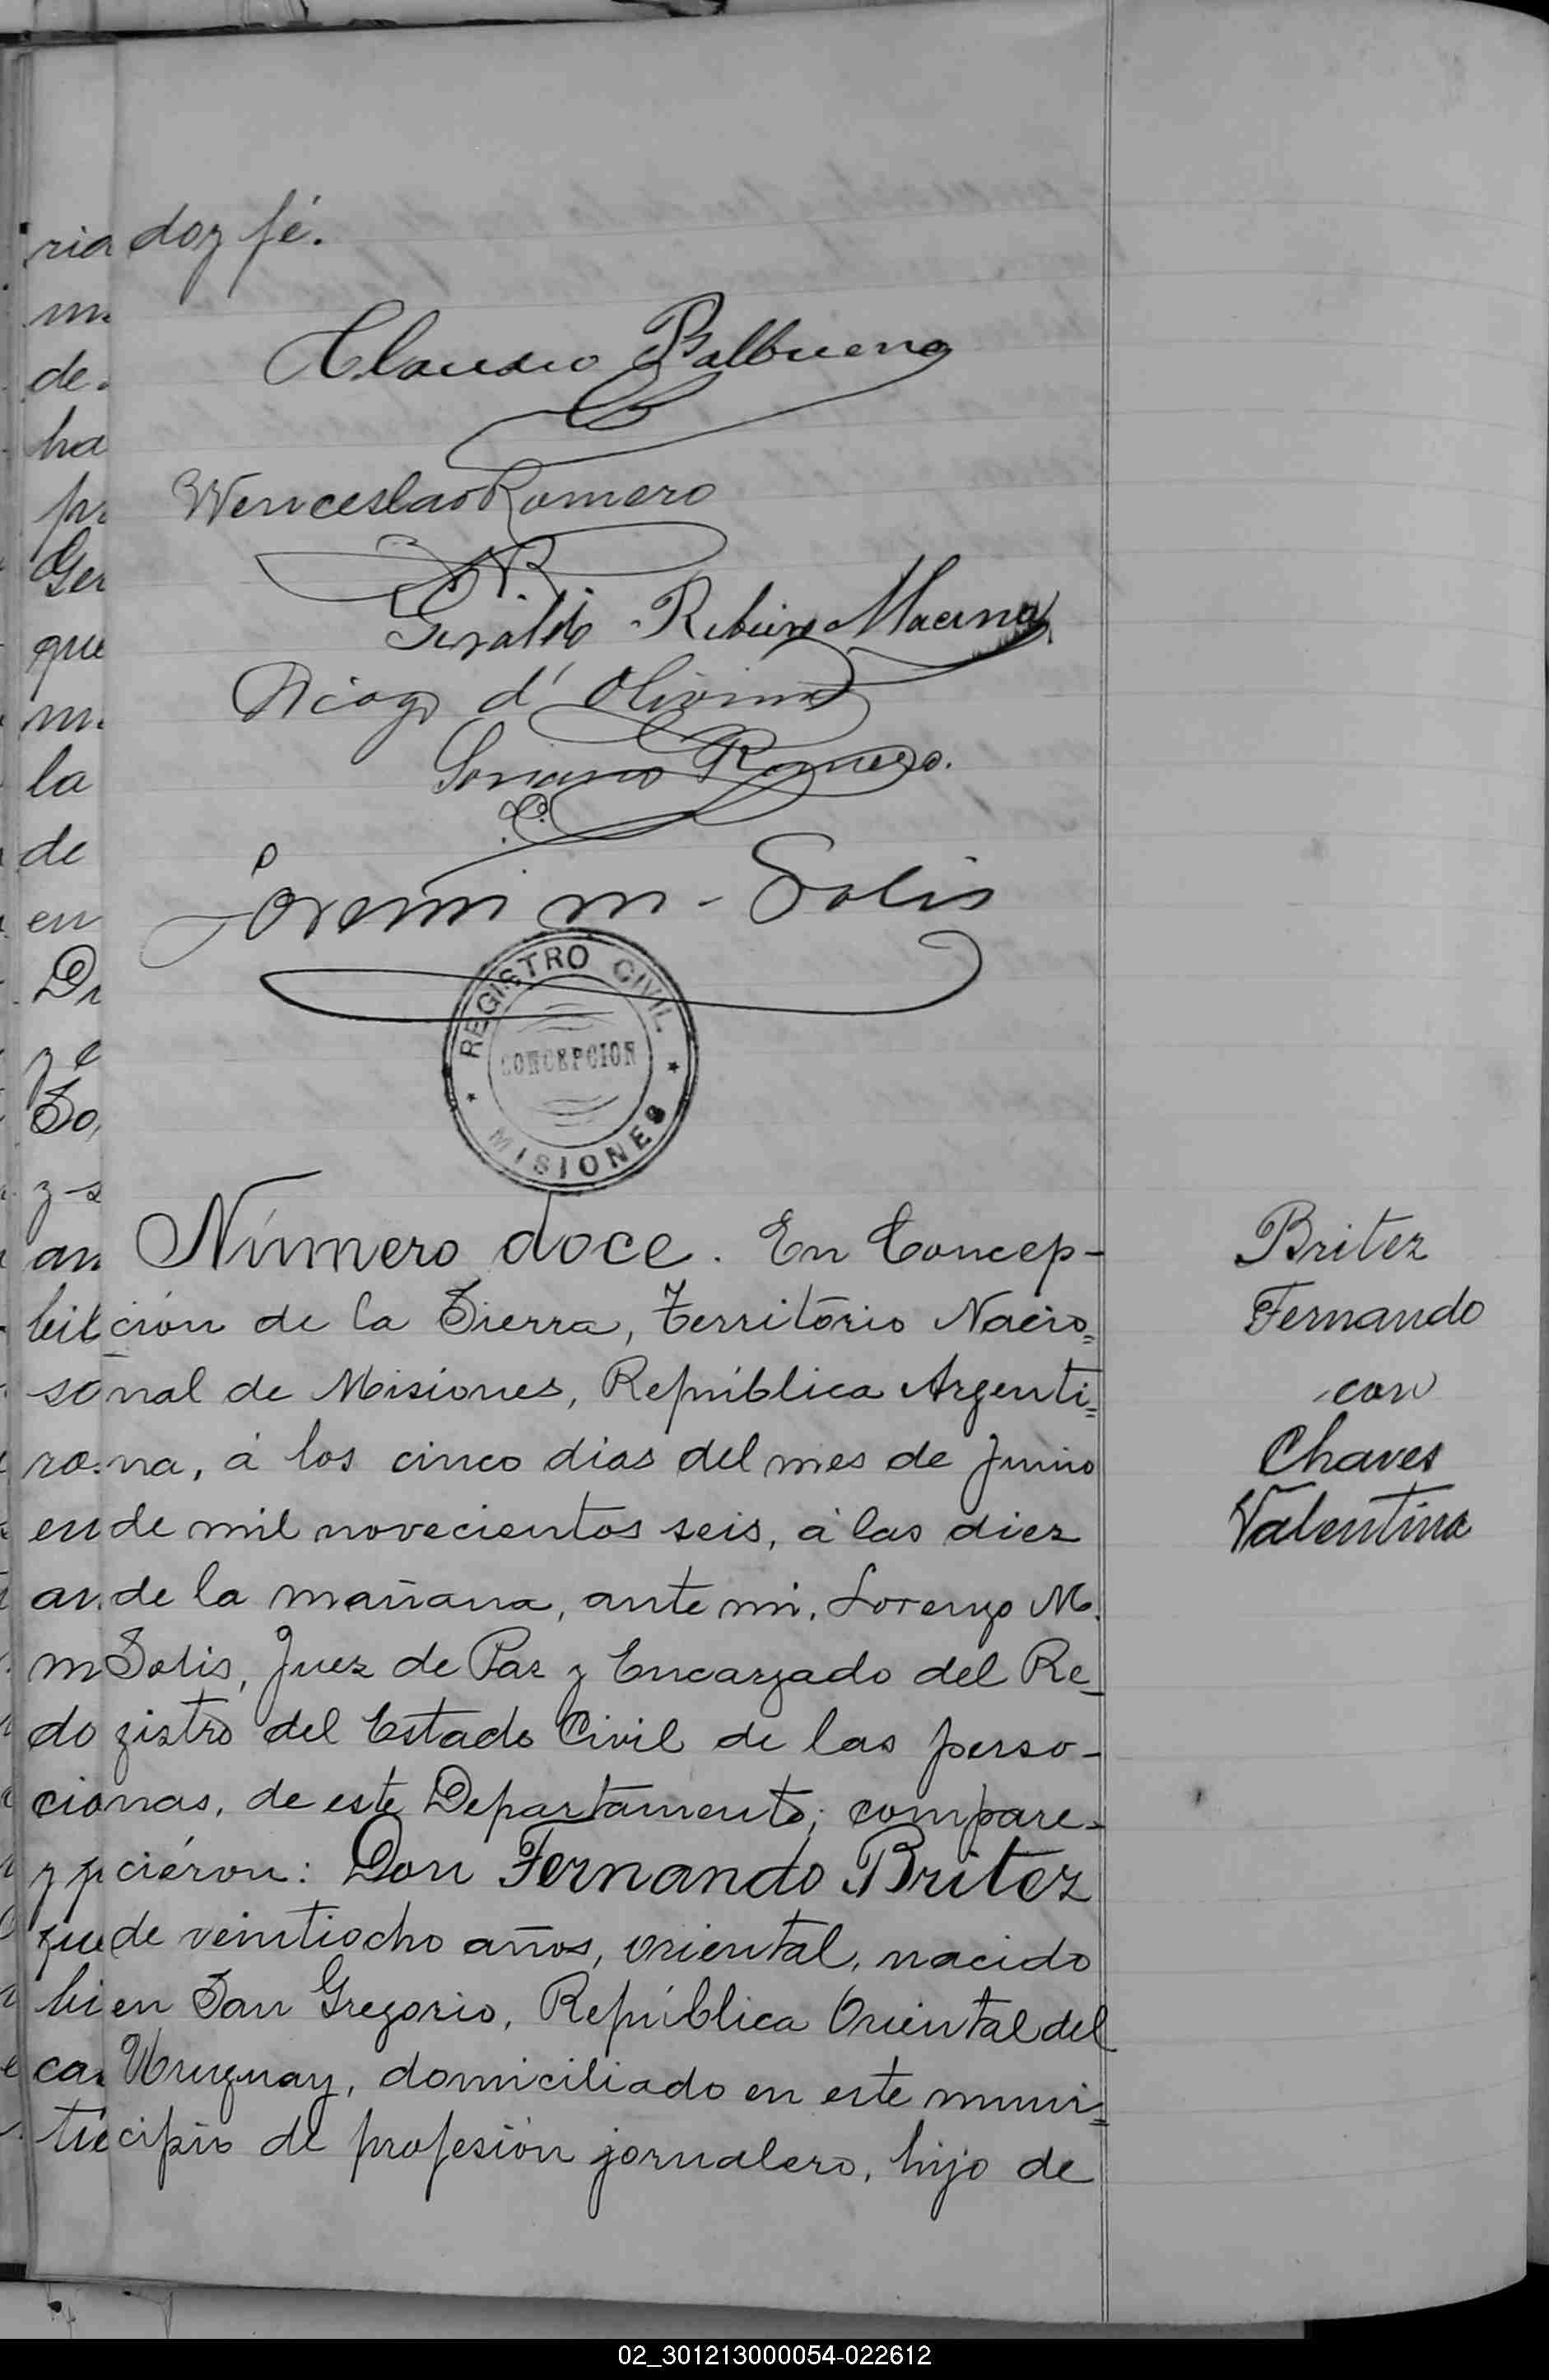 doy fé.
Claudio Balbuena
Wenceslao Romero
Geraldo Ribeiro
Diogo d' Olivira
Soriano Romero.
Lorenzo M. Solis
REGISTRO CIVIL
CONCEPCION
MISIONES
Número doce. En Concep-
ción de la Sierra, Território Nacio=
nal de Misiones, República Argenti=
na, á los cinco dias del mes de Junio
de mil novecientos seis, á las diez
de la mañana, ante mi, Lorenzo M.
Solis, Juez de Paz y Encargado del Re-
gistro del Estado Civil de las perso-
nas, de este Departamento; compare-
ciéron: Don Fernando Britez
de veintiocho años, oriental, nacido
en San Gregorio, República Oriental del
Uruguay, domiciliado en este muni=
cipio de profesión jornalero, hijo de
Britez
Fernando
con
Chaves
Valentina
ria
m.
de.
ha
pr
Ger
que
m.
la
de
en
Dr
y e
So,
y s
an
bil
so
ro.
en
an.
m
do
cio
y p
que
bi
ca
tie
02_301213000054-022612